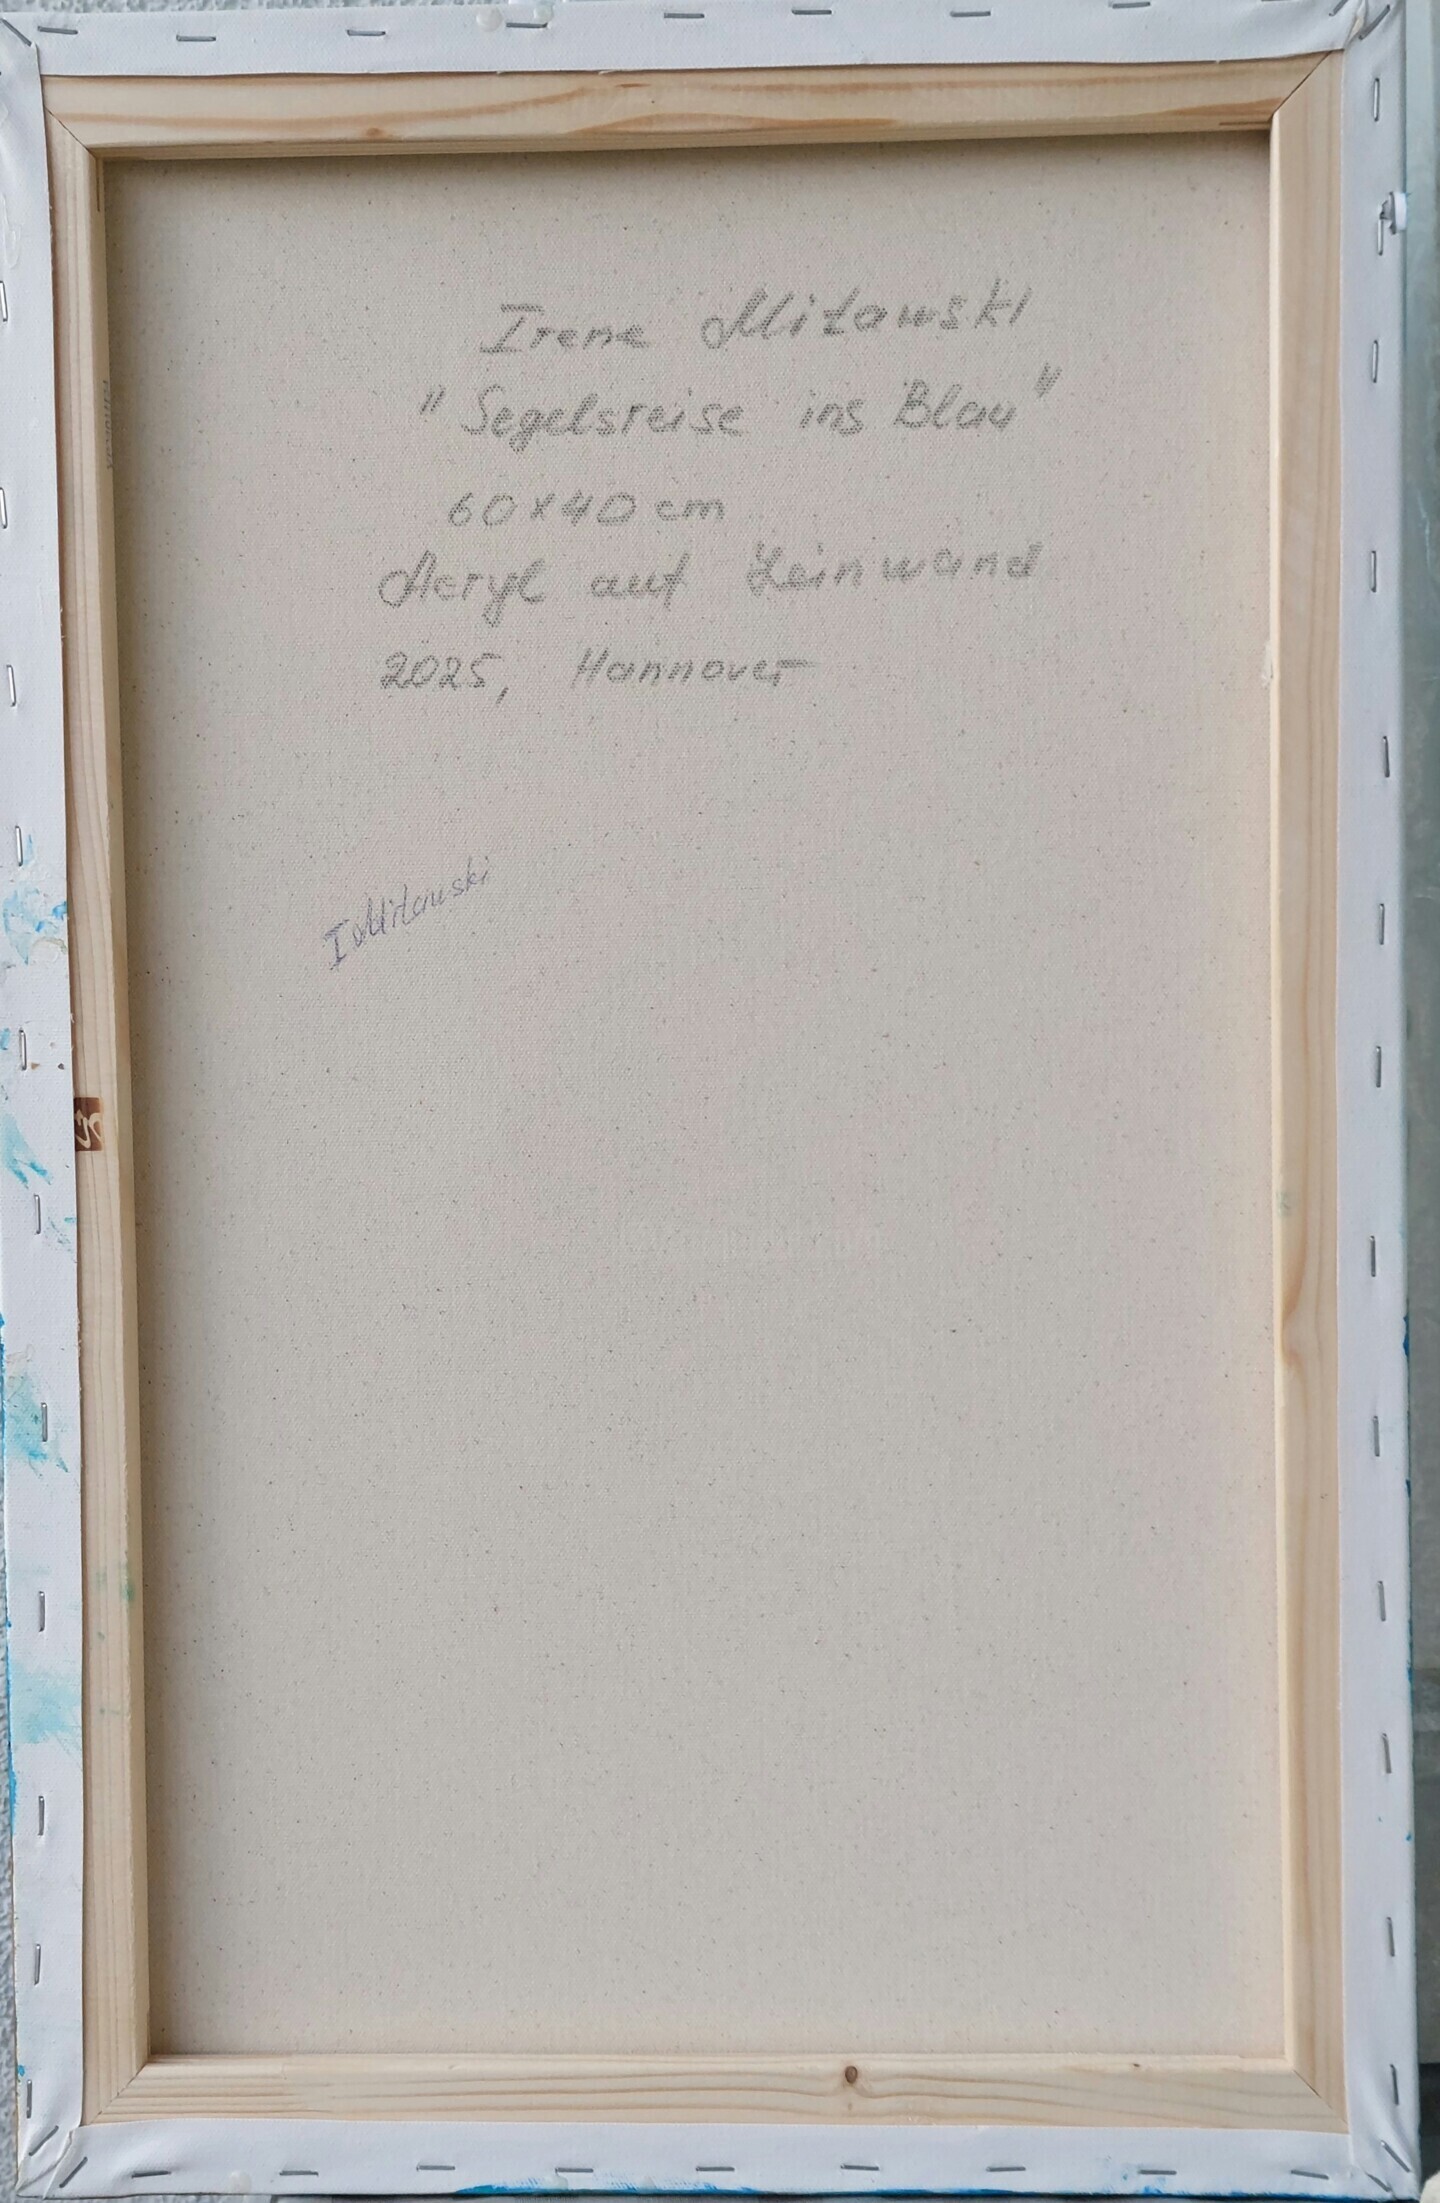 Irene Mitawski
"Segelsreise ins Blau"
60x40 cm
Acryl auf Leinwand
2025, Hannover
I Mitawski